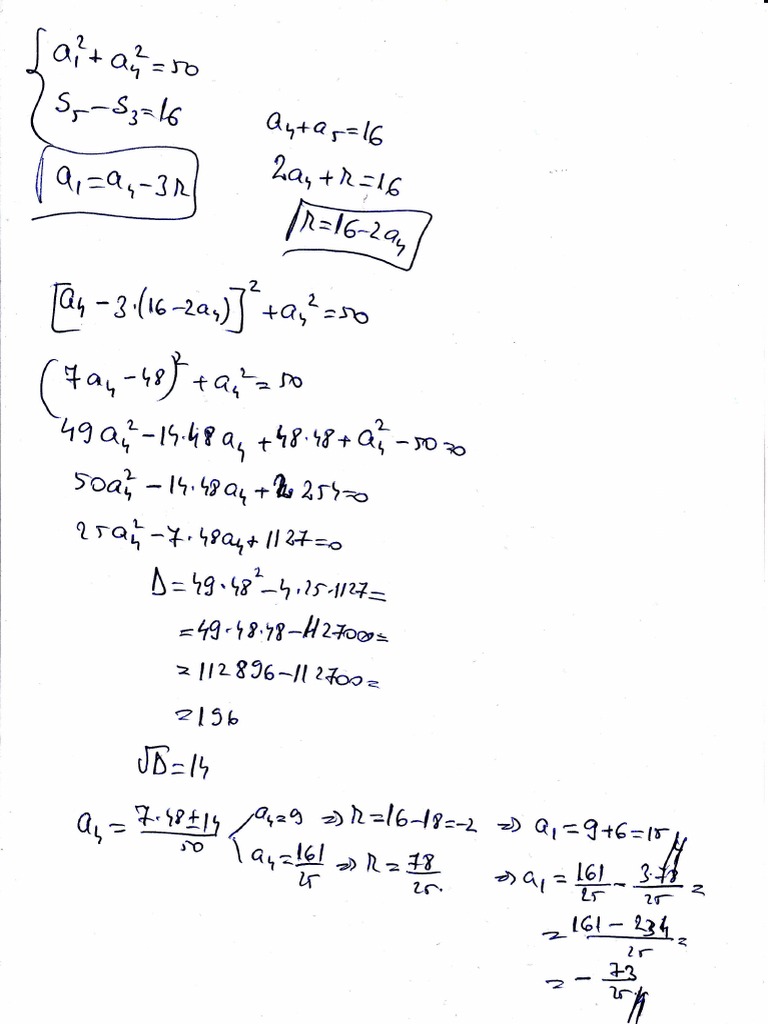 a₁² + a₄² = 50
S₅ − S₃ = 16
a₁ = a₄ − 3r
a₄ + a₅ = 16
2a₄ + r = 16
r = 16 − 2a₄
[a₄ − 3·(16 − 2a₄)]² + a₄² = 50
(7a₄ − 48)² + a₄² = 50
49a₄² − 14·48a₄ + 48·48 + a₄² − 50 = 0
50a₄² − 14·48a₄ + 2254 = 0
25a₄² − 7·48a₄ + 1127 = 0
Δ = 49·48² − 4·25·1127 =
= 49·48·48 − 112700 =
= 112896 − 112700 =
= 196
√Δ = 14
a₄ = (7·48 ± 14)/50
a₄ = 9 ⇒ r = 16 − 18 = −2 ⇒ a₁ = 9 + 6 = 15
a₄ = 161/25 ⇒ r = 78/25. ⇒ a₁ = 161/25 − 3·78/25 =
= (161 − 234)/25 =
= −73/25